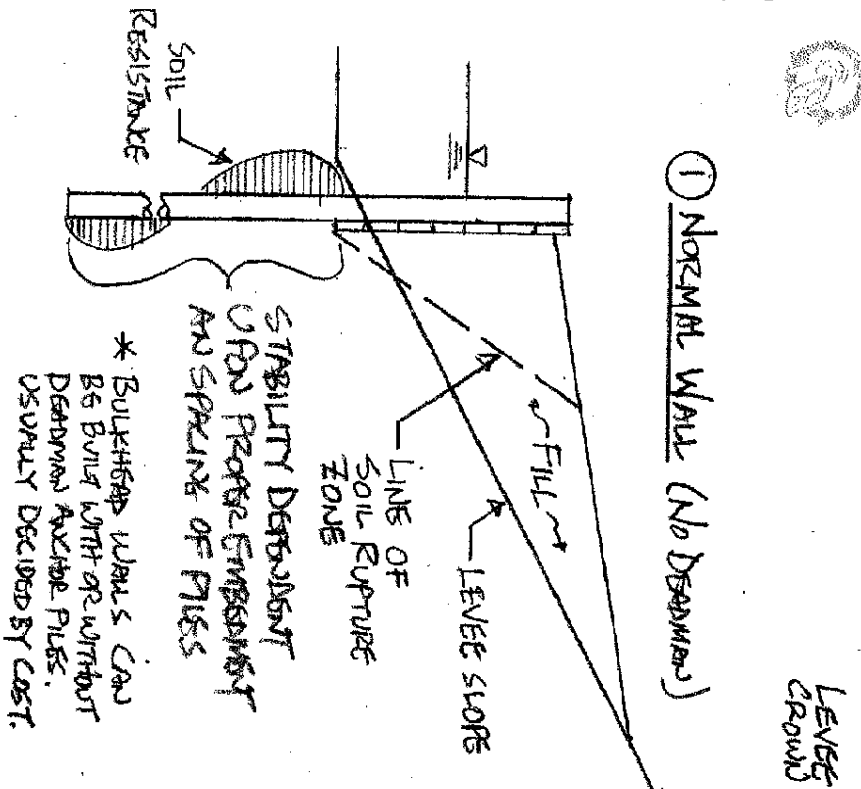 LEVEE
CROWN
① NORMAL WALL (NO DEADMAN)
~FILL~
LEVEE SLOPE
LINE OF
SOIL RUPTURE
ZONE
SOIL
RESISTANCE
STABILITY DEPENDENT
UPON PROPER EMBEDMENT
AN SPACING OF PILES
* BULKHEAD WALLS CAN
BE BUILT WITH OR WITHOUT
DEADMAN ANCHOR PILES.
USUALLY DECIDED BY COST.